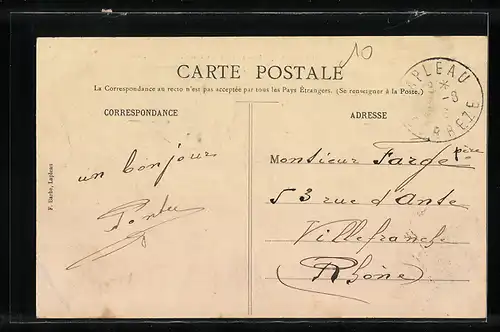 10
CARTE POSTALE
La Correspondance au recto n'est pas acceptée par tous les Pays Étrangers. (Se renseigner à la Poste.)
CORRESPONDANCE
ADRESSE
LAPLEAU
CORRÈZE
un bonjour
Monsieur Farge père
53 rue d'Ante
Villefranche
(Rhône)